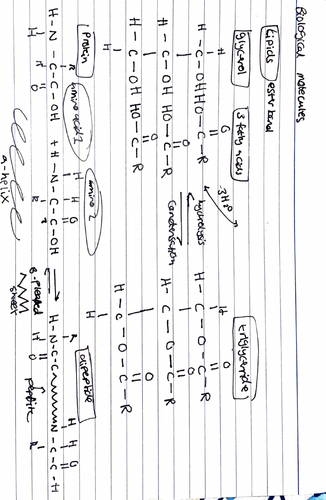 Biological molecules
Lipids ester bond
glycerol 3 fatty acids triglyceride
H H
H - C - OH HO - C - R H - C - O - C - R
O O
3H₂O
hydrolysis
H - C - OH HO - C - R H - C - O - C - R
O O
Condensation
H - C - OH HO - C - R H - C - O - C - R
O O
H H
Protein amino acid 1 amino 2 dipeptide
H - N - C - C - OH + H - N - C - C - OH
H O
α-helix
β-pleated sheet